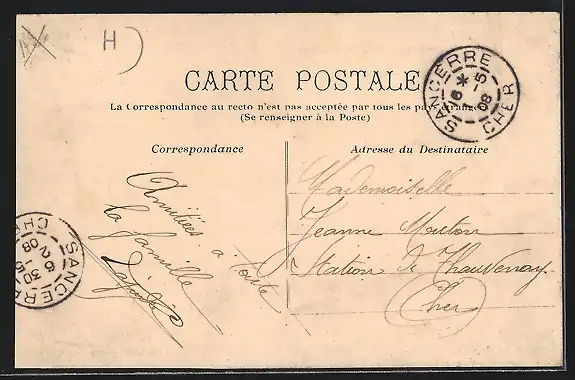 H
CARTE POSTALE
La Correspondance au recto n'est pas acceptée par tous les pays étrangers
(Se renseigner à la Poste)
SANCERRE
6 * 5
08
CHER
Correspondance
Adresse du Destinataire
Amitiées à toute
la famille
Mademoiselle
Jeanne Mouton
Station de Thauvenay
(Cher)
SANCERRE
CHER
6 30
08